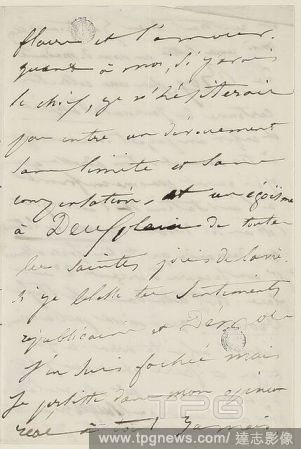 et l'amour.
quant à moi, si j'avais
le choix, je n'hésiterais
pas entre un dévouement
sans limite et sans
et un égoïsme
à Deux plein de toutes
les saintes joies de la vie.
si je blesse tes sentiments
républicains et
j'en suis fachée mais
je persiste dans mon
à tout jamais
TPG
www.tpgnews.com/達志影像